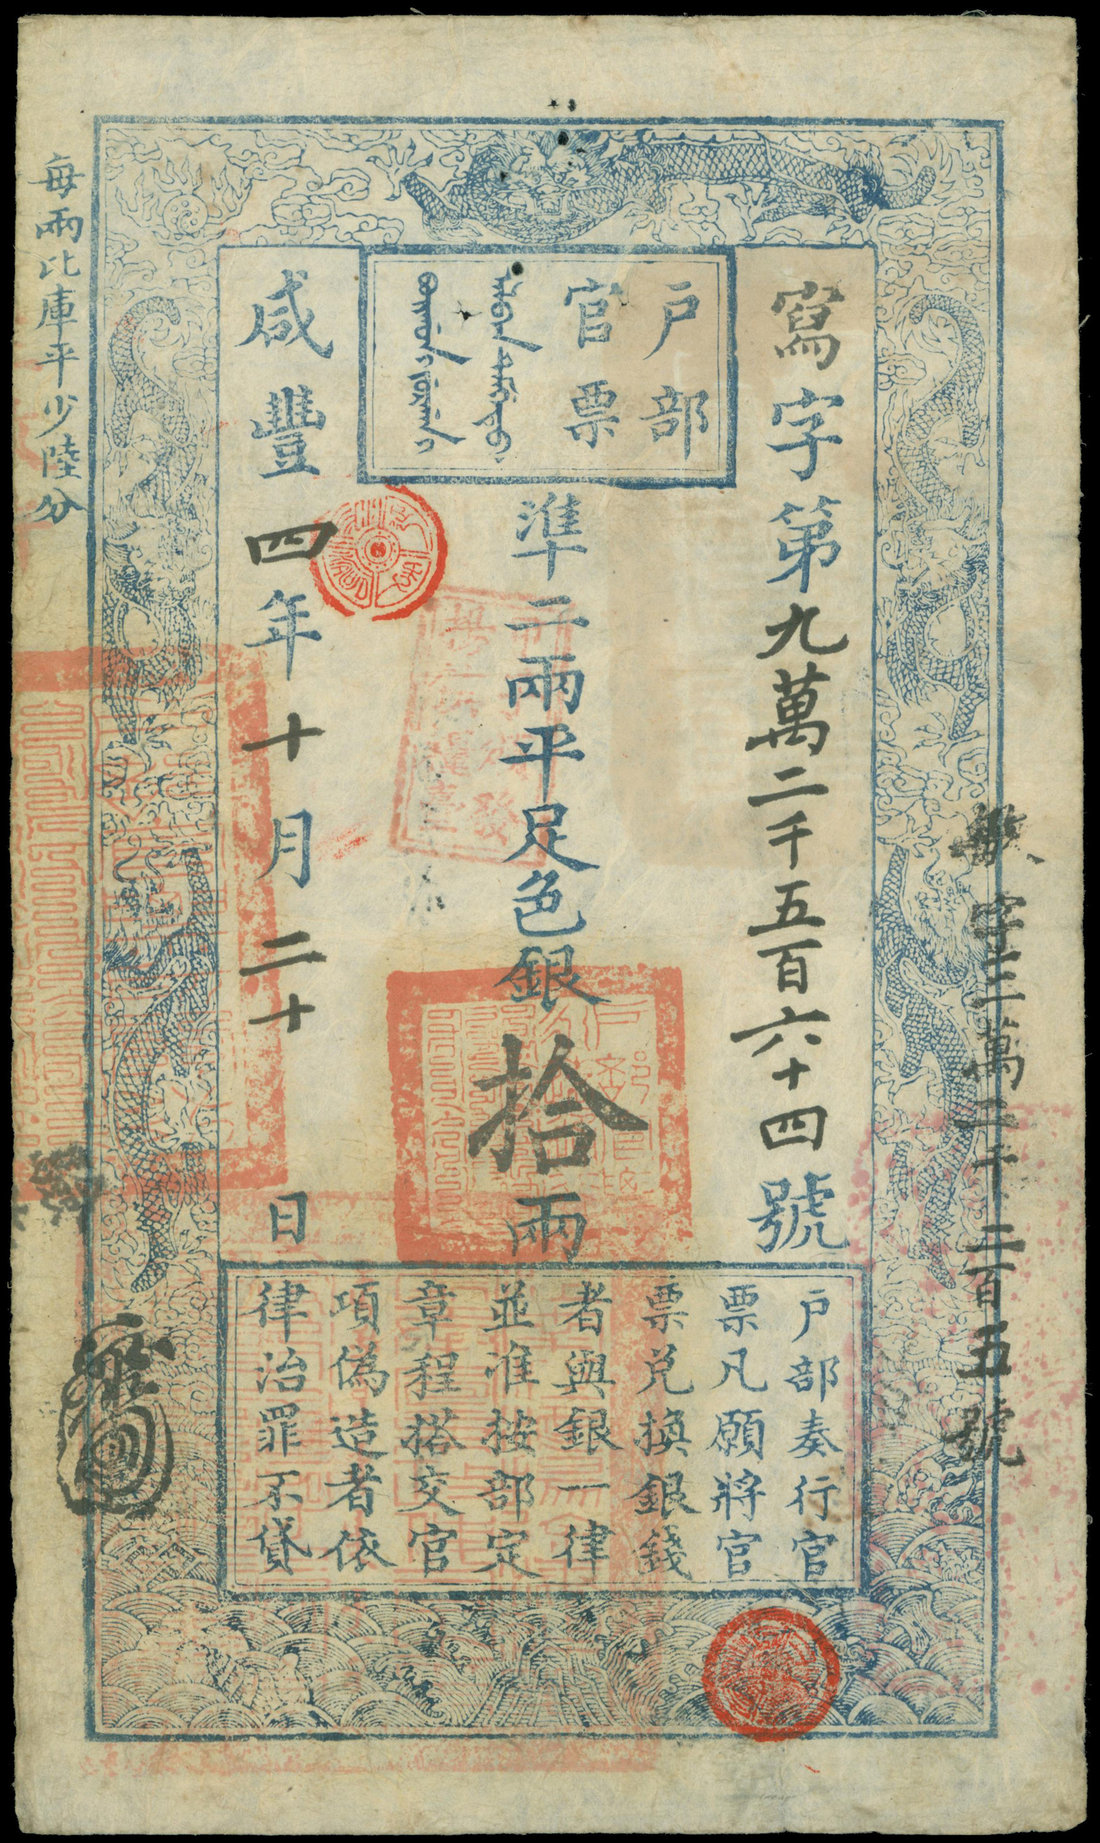 戶部
官票
寫字第九萬二千五百六十四號
準二兩平足色銀拾兩
咸豐四年十月二十日
戶部奏行官
票凡願將官
票兌換銀錢
者與銀一律
並准按部定
章程搭交官
項偽造者依
律治罪不貸
每兩比庫平少陸分
字三萬二千三百五號